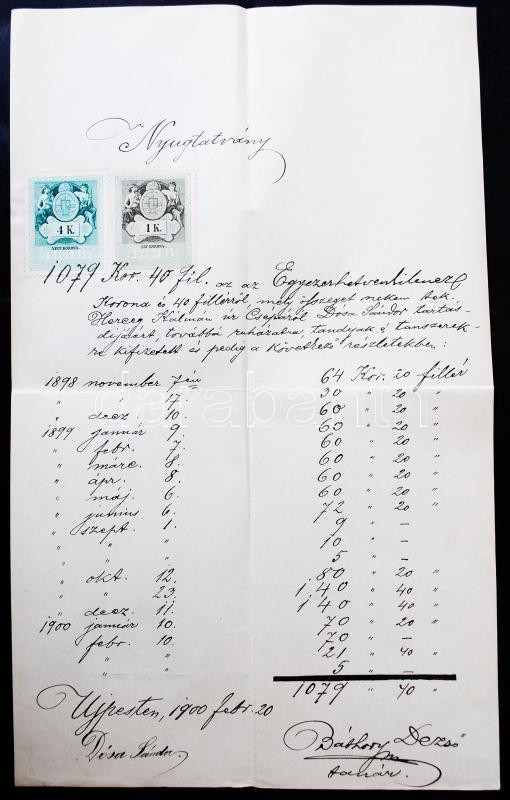 Nyugtatvány
4 K.
NÉGY KORONA
1 K.
EGY KORONA
1079 Kor. 40 fil. az az Egyezerhetvenkilencz
Korona és 40 fillérről, mely összeget nekem tek.
Herceg Kálmán úr Csépáról Dósa Sándor tartás-
dijáért, továbbá ruházatra, tandijak és tanszerek-
re kifizetett és pedig a következő részletekben:
1898 november 7én 64 Kor. 20 fillér
" " 17. 30 " 20 "
" decz. 10. 60 " 20 "
1899 január 9. 60 " 20 "
" febr. 7. 60 " 20 "
" márc. 8. 60 " 20 "
" ápr. 8. 60 " 20 "
" máj. 6. 60 " 20 "
" junius 6. 72 " 20 "
" szept. 1. 9 " —
" " " 10 " —
" " " 5 " —
" okt. 12. 80 " 20 "
" " 23. 140 " 40 "
" decz. 11. 140 " 40 "
1900 január 10. 70 " 20 "
" febr. 10. 70 " —
" " " 21 " 40 "
" " " 5 " —
1079 " 40 "
Ujpesten, 1900 febr. 20
Dósa Sándor
Báthory Dezső
tanár.
darabanth